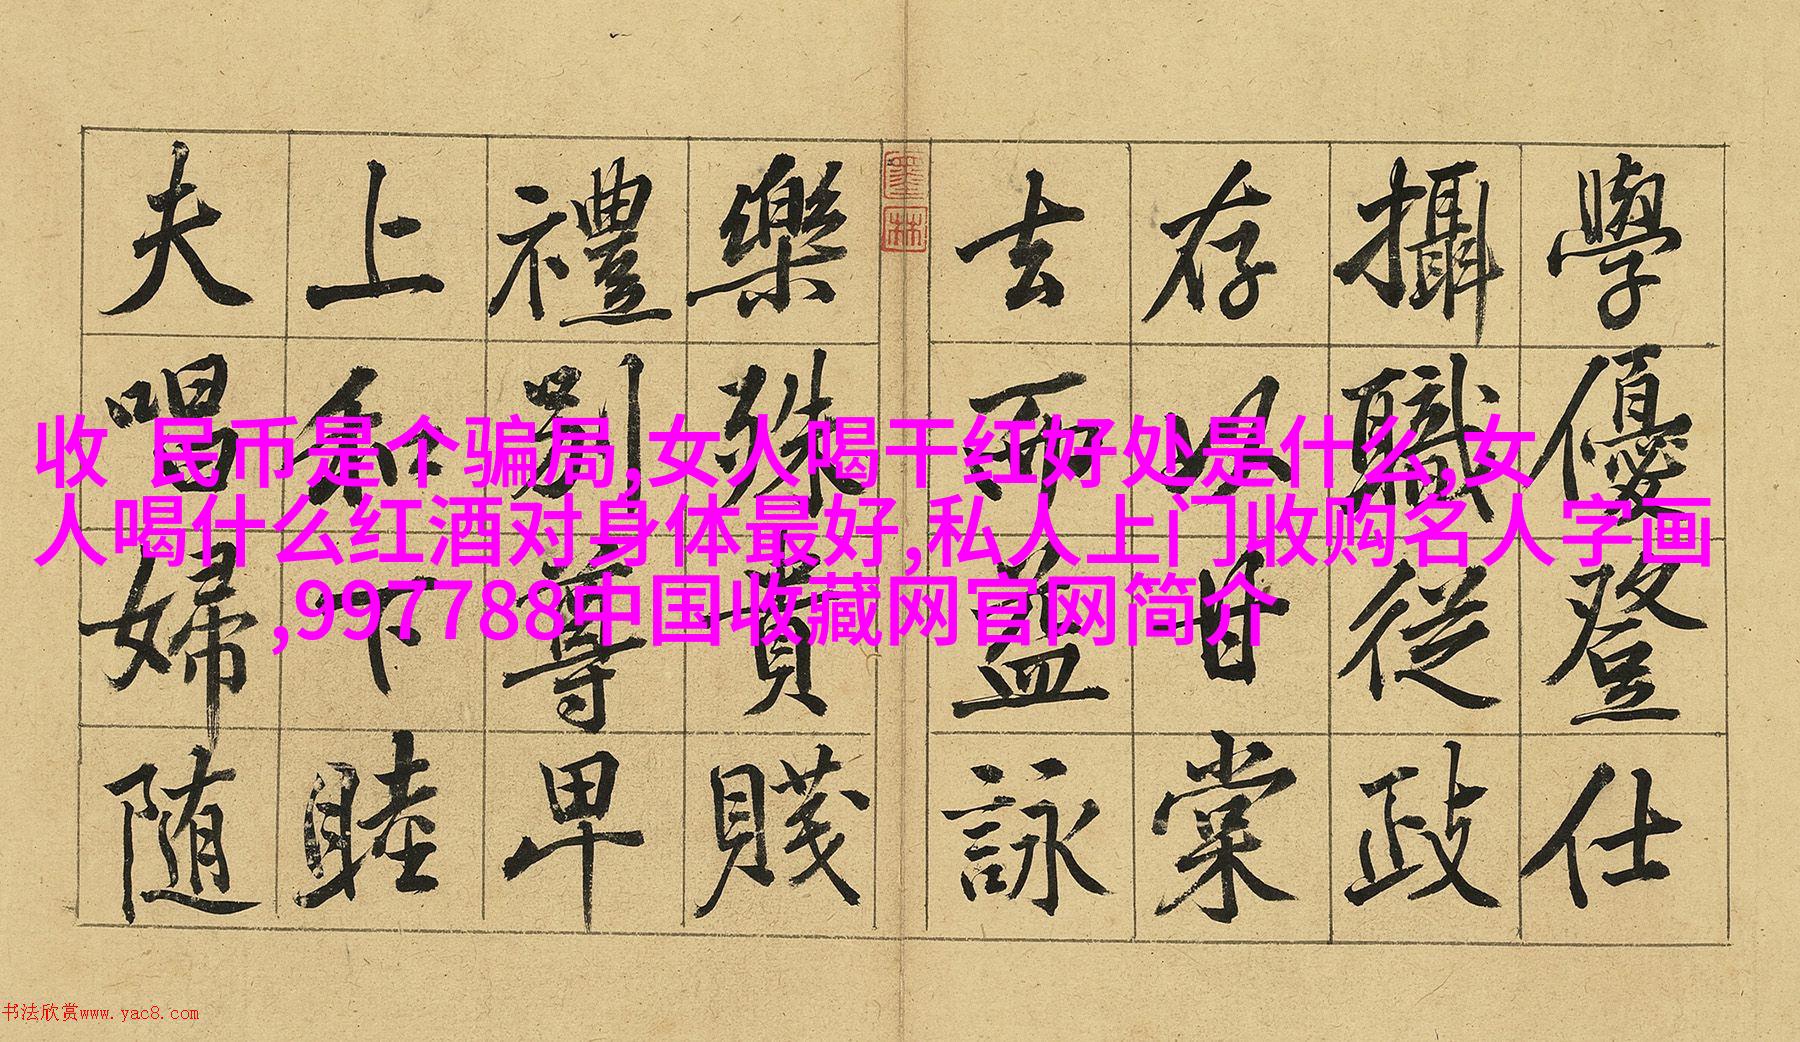 學優登仕
攝職從政
存以甘棠
去而益詠
墨林
樂殊貴賤
禮別尊卑
上和下睦
夫唱婦随
收 民币是个骗局,女人喝干红好处是什么,女
人喝什么红酒对身体最好,私人上门收购名人字画
,997788中国收藏网官网简介
书法欣赏www.yac8.com